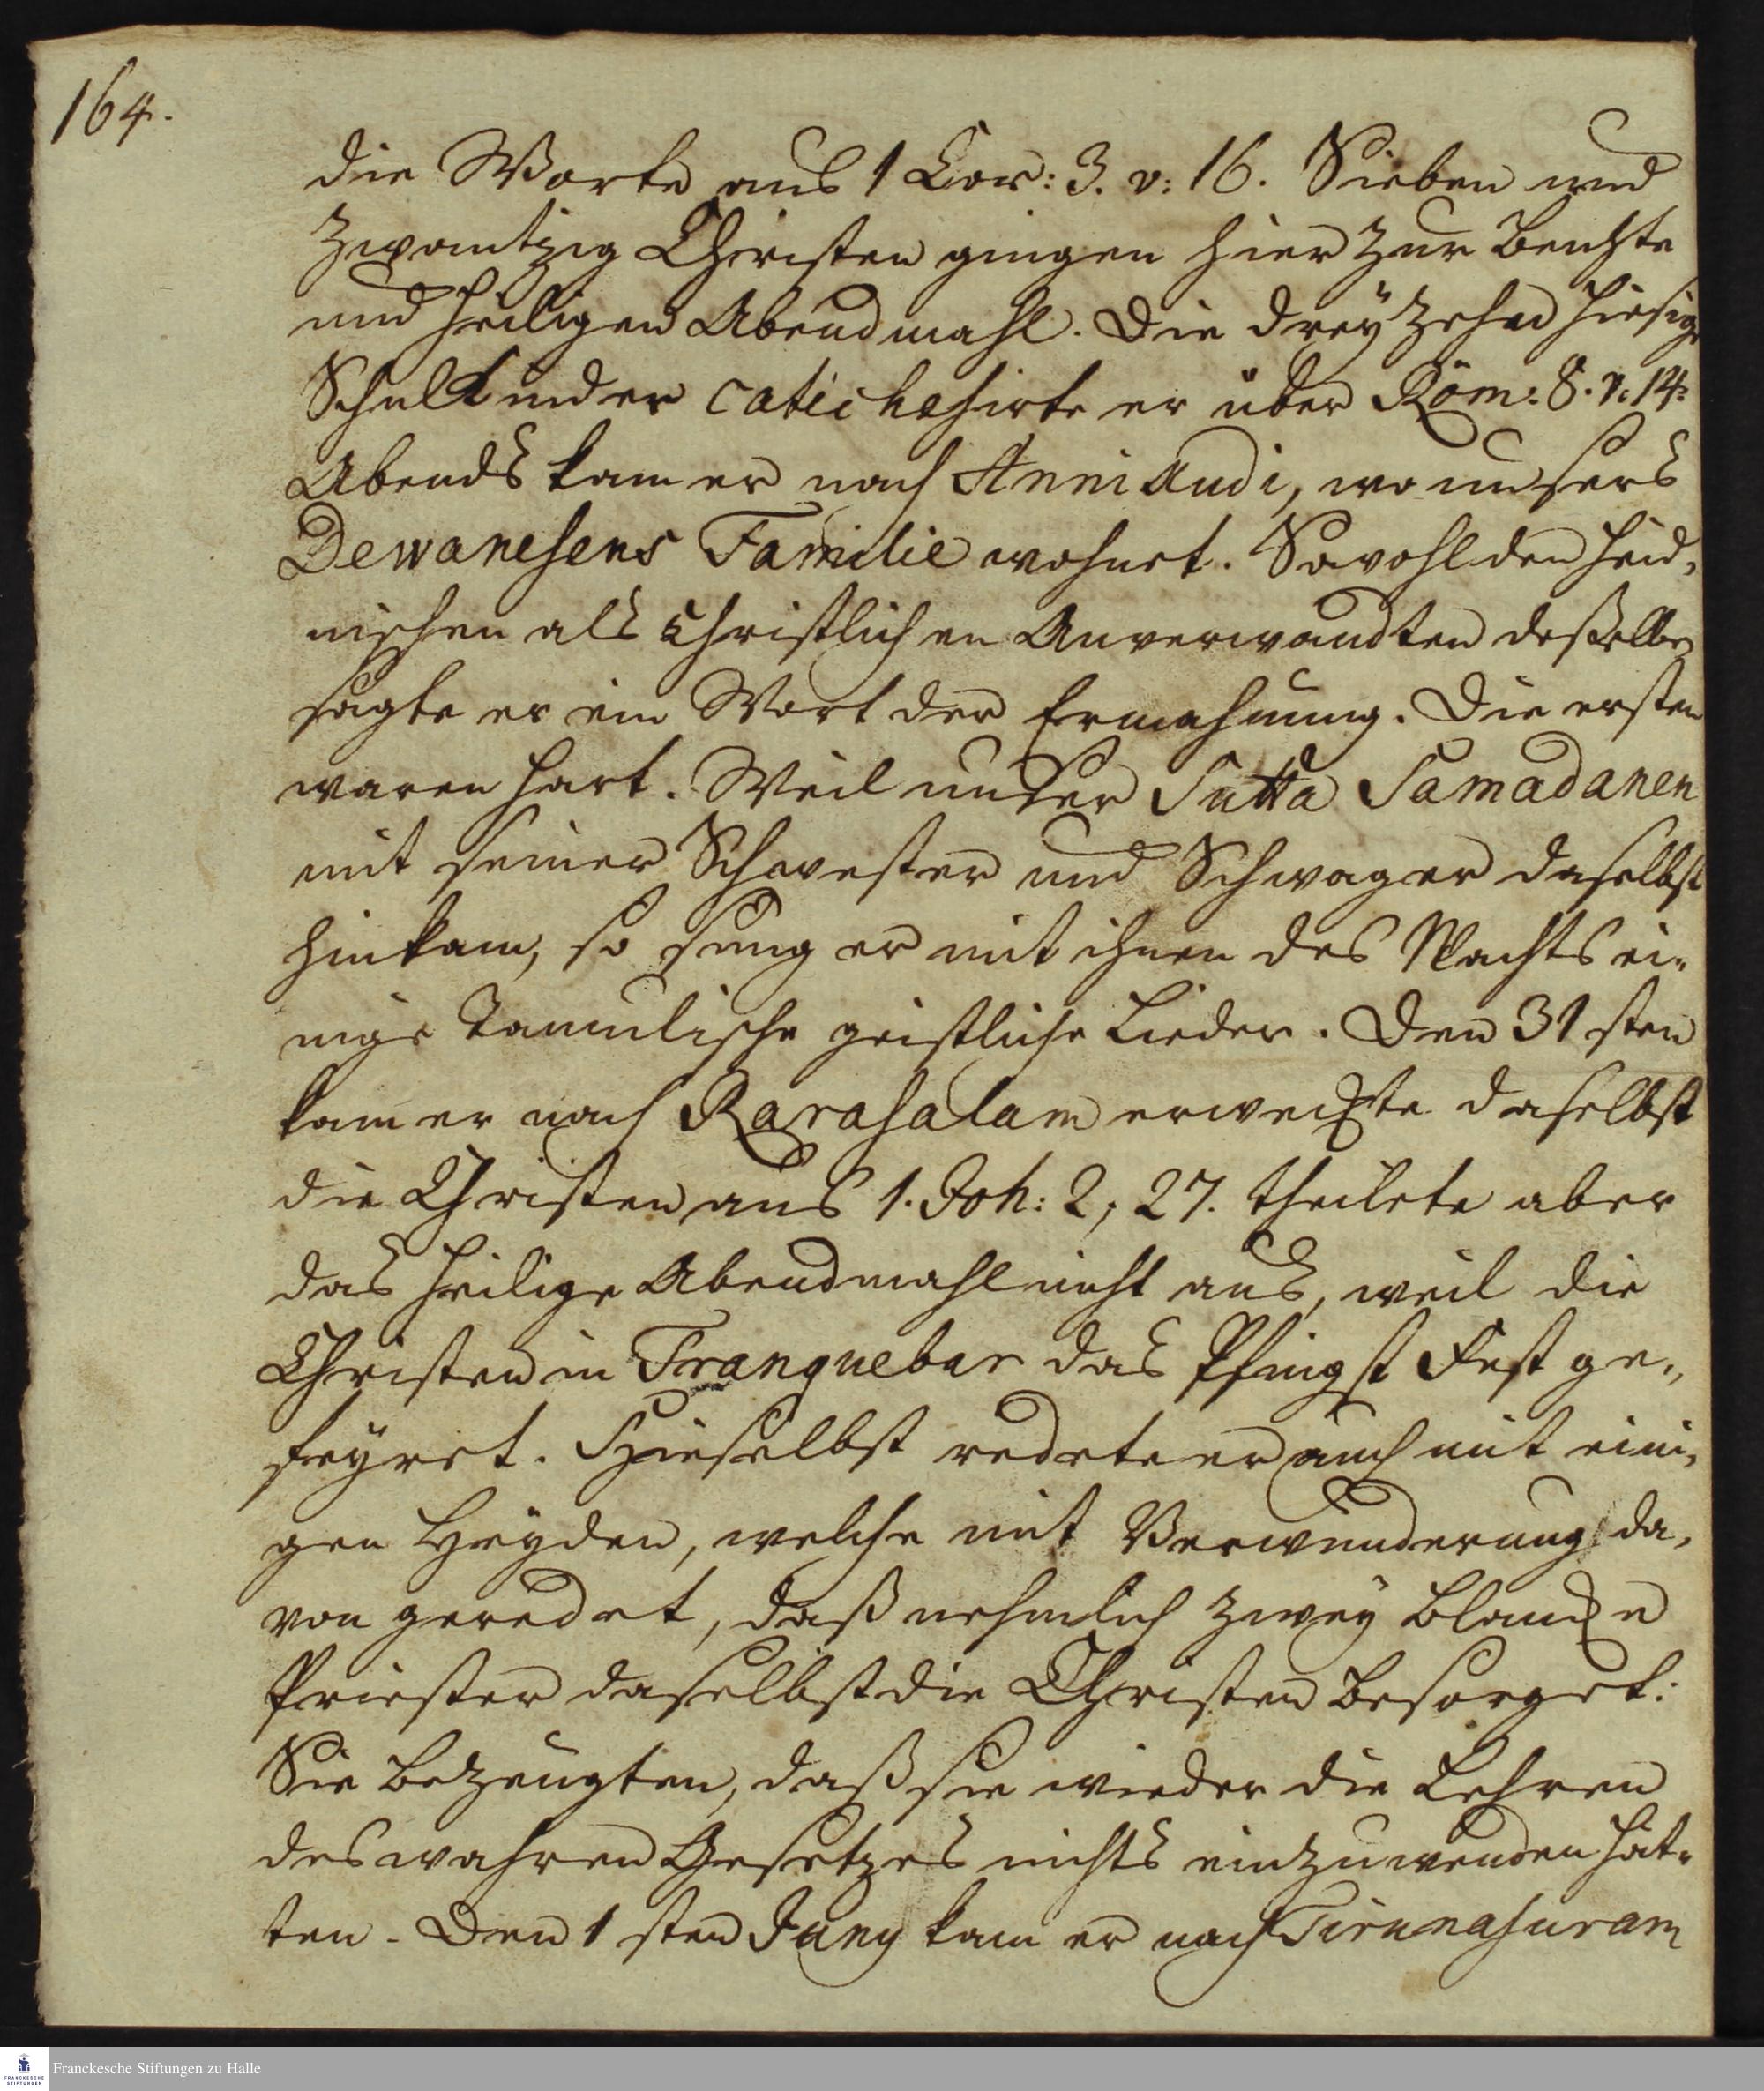 164.
die Worte aus 1 Cor: 3. v: 16. Sieben und
zwantzig Christen gingen hier zur Beichte
und heiligen Abendmahl. Die dreyzehn hiesige
Schulkinder catichesirte er über Röm: 8. v. 14.
Abends kam er nach Anniaudi, wo unsers
Dewanesens Familie wohnet. Sowohl den heid,
nischen als Christlichen Anverwandten desselben
sagte er ein Wort der Ermahnung. Die ersten
waren hart. Weil unser Sutta Samadanen
mit seiner Schwester und Schwager daselbst
hinkam, so sung er mit ihnen des Nachts ei-
nige Tamulische geistliche Lieder. Den 31 sten
kam er nach Rarasalam erweckte daselbst
die Christen aus 1. Joh: 2, 27. theilete aber
das heilige Abendmahl nicht aus, weil die
Christen in Tranquebar das Pfingst Fest ge-
feyret. Hieselbst redete er auch mit eini,
gen Heyden, welche mit Verwunderung da,
von geredet, daß nehmlich zwey blancke
Priester daselbst die Christen besorget:
Sie bezeugten, daß sie wieder die Lehren
des wahren Gesetzes nichts einzuwenden hät-
ten. Den 1 sten Juny kam er nach Tirunasuram
Franckesche Stiftungen zu Halle